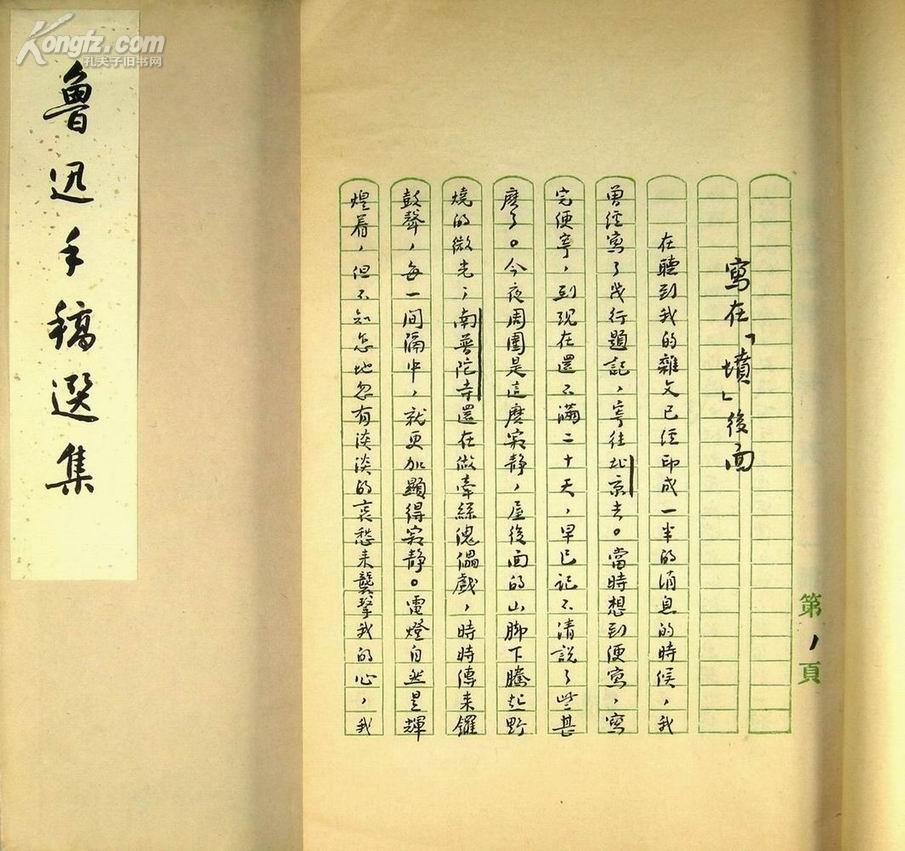 Kongfz.com
孔夫子旧书网
魯迅手稿選集
寫在「墳」後面
在聽到我的雜文已經印成一半的消息的時候，我
曾經寫了幾行題記，寄往北京去。當時想到便寫，寫
完便寄，到現在還不滿二十天，早已記不清說了些甚
麼了。今夜周圍是這麼寂靜，屋後面的山腳下騰起野
燒的微光；南普陀寺還在做牽絲傀儡戲，時時傳來鑼
鼓聲，每一間隔中，就更加顯得寂靜。電燈自然是輝
煌着，但不知怎地忽有淡淡的哀愁來襲擊我的心，我
第1頁